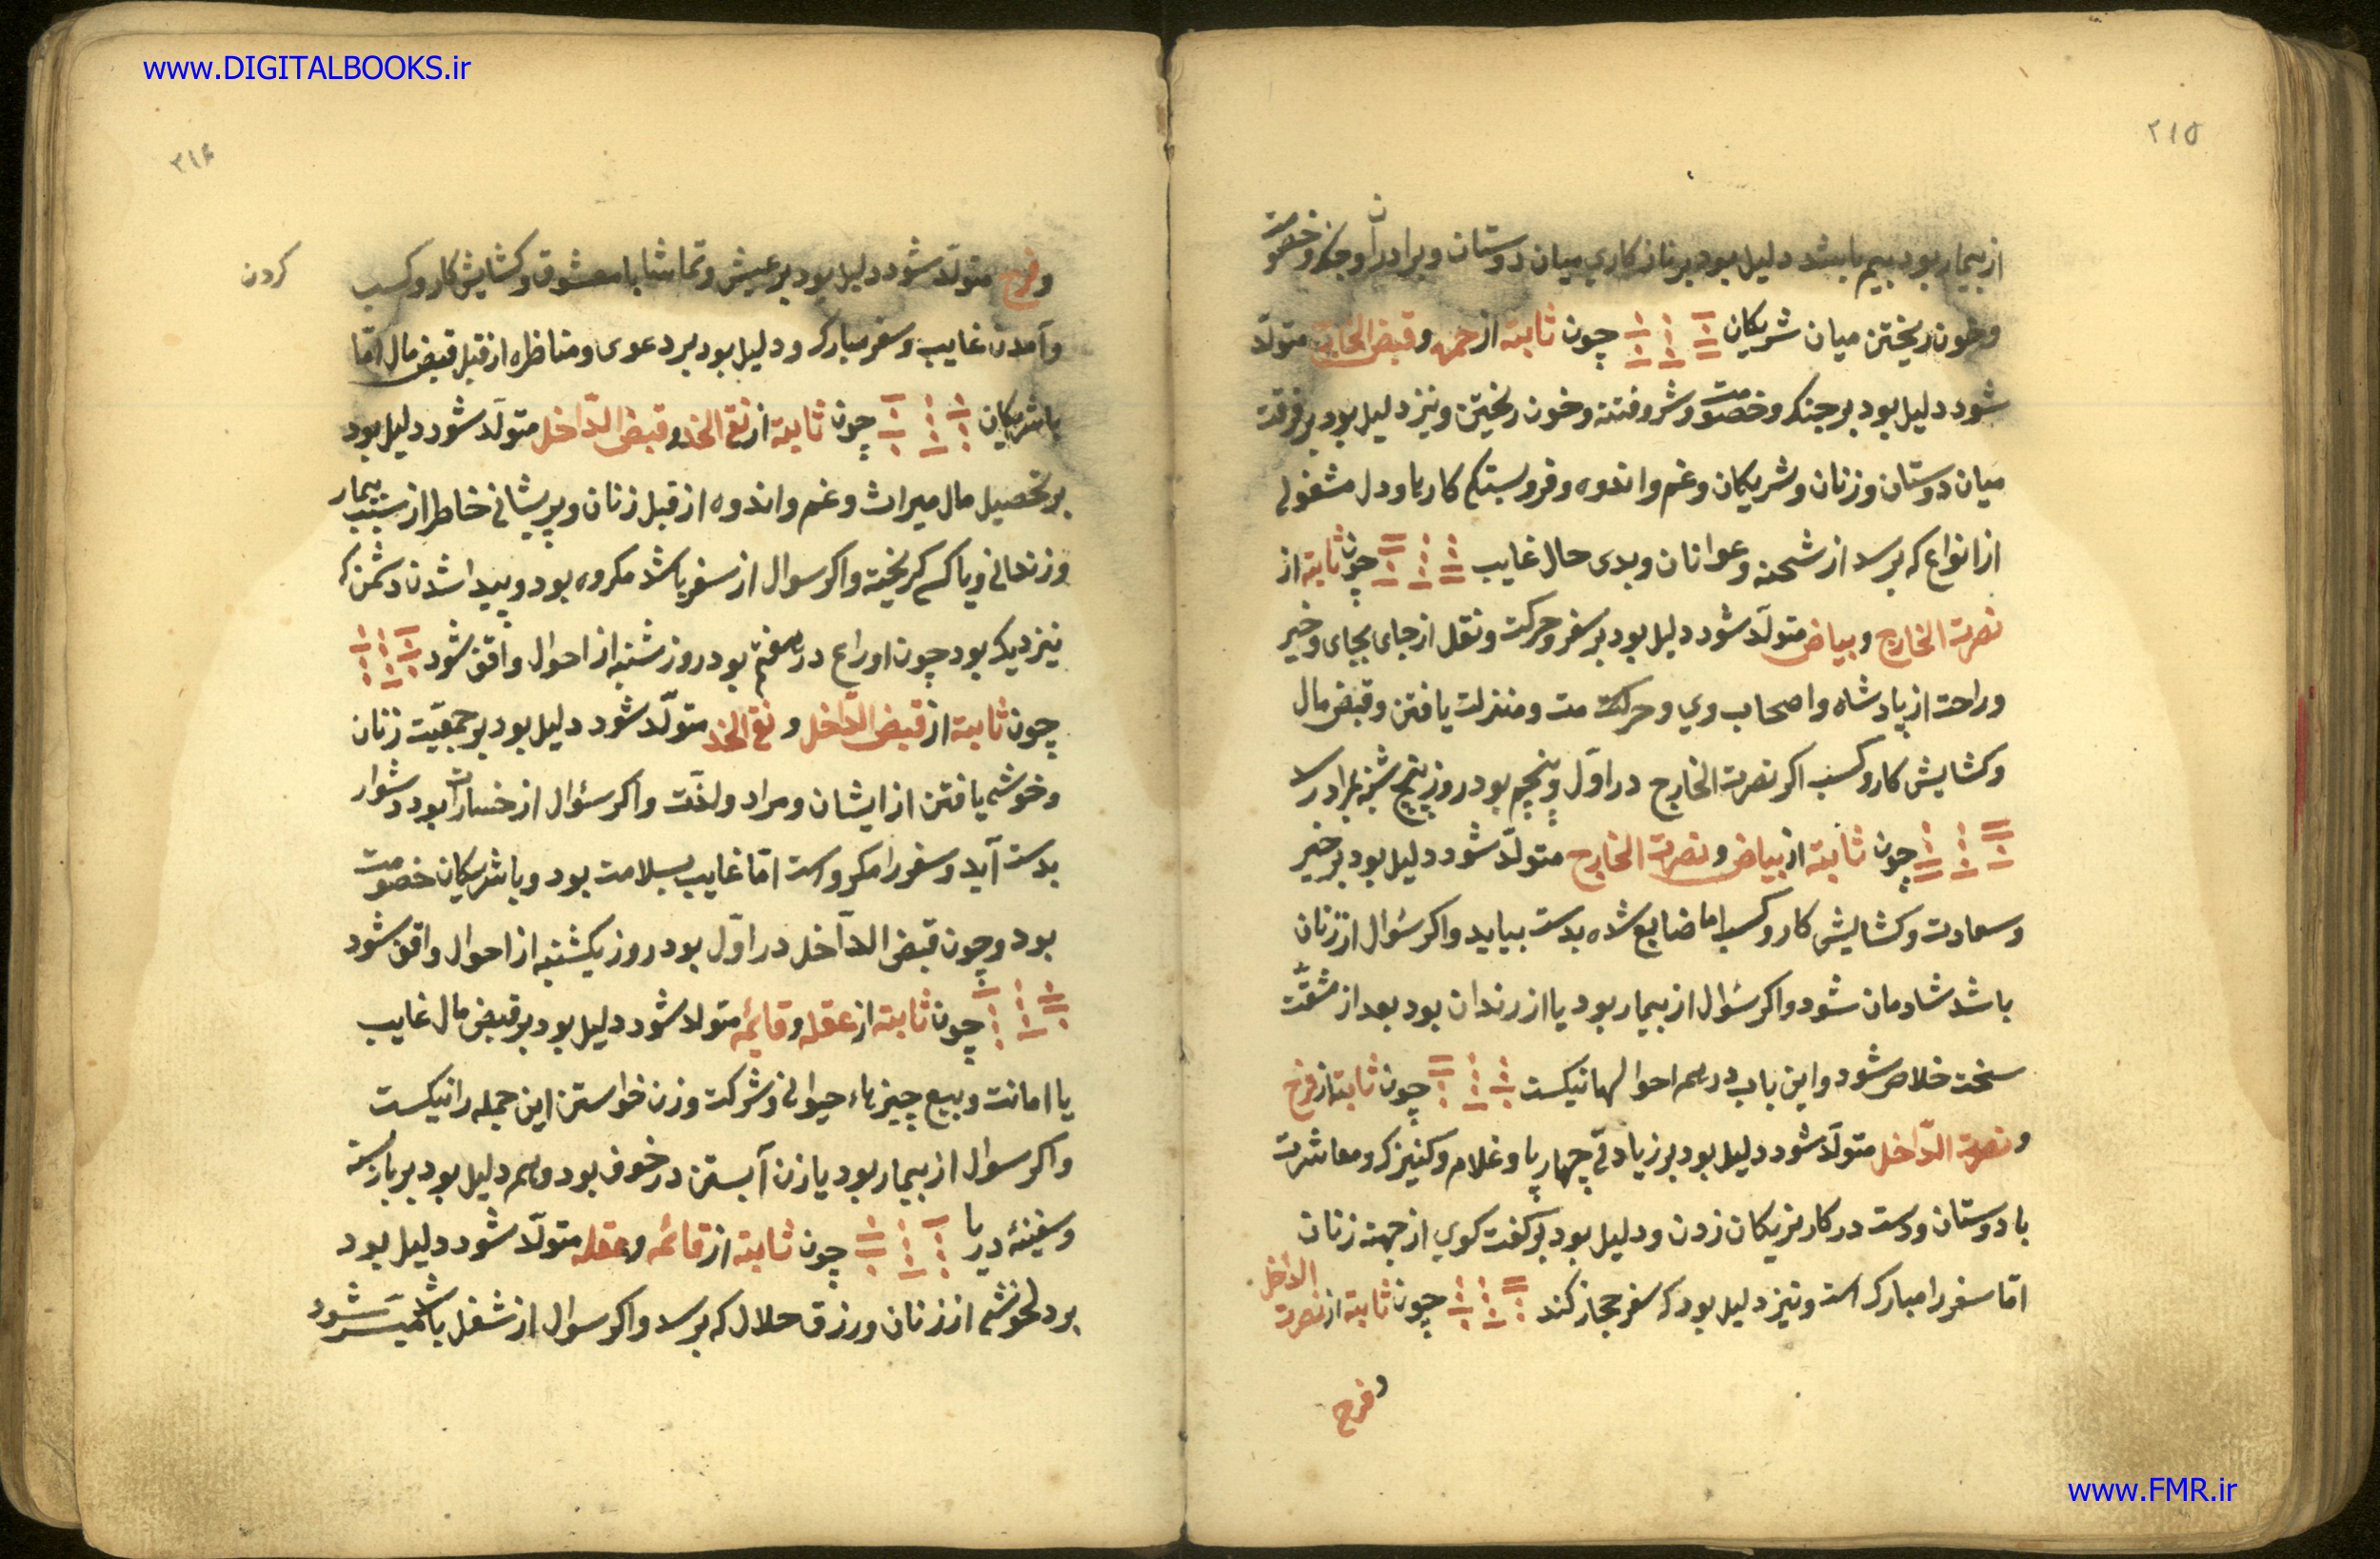 www.DIGITALBOOKS.ir
۲۱۵
از بیمار بود بیم باشد دلیل بود بر نازکاری میان دوستان و برادران و جنک و خصومت
و خون ریختن میان شریکان چون ثابته از حمره و قبض الخارج متولّد
شود دلیل بود بر جنک و خصومت و شر و فتنه و خون ریختن و نیز دلیل بود بر فرقت
میان دوستان و زنان و شریکان و غم و اندوه و فروبستکی کارها و دل مشغولی
از انواع که برسد از شحنه و عوانان و بدی حال غایب چون ثابته از
نصرت الخارج و بیاض متولّد شود دلیل بود بر سفر و حرکت و نقل از جای بجای و خیر
و راحت از پادشاه و اصحاب وی و حرکت و منزلت یافتن و قبض مال
و کشایش کار و کسب اکر نصرت الخارج در اوّل و پنجم بود روز پنج شنبه بمراد رسد
چون ثابته از بیاض و نصرت الخارج متولّد شود دلیل بود بر خیر
و سعادت و کشایش کار و کسب اما ضایع شده بدست بیاید و اکر سؤال از زنان
باشد شادمان شود و اکر سؤال از بیمار بود یا از زندان بود بعد از مشقّت
سخت خلاص شود و این باب در همه احوالها نیکست چون ثابته از فرح
و نصرت الدّاخل متولّد شود دلیل بود بر زیادتی چهارپا و غلام و کنیزک و معاشرت
با دوستان و دست در کار نزیکان زدن و دلیل بود بر کفت کوی از جهت زنان
امّا سفر را مبارک است و نیز دلیل بود که سفر حجاز کند چون ثابته از نصرت الداخل
و فرح
۲۱۶
و فرح متولّد شود دلیل بود بر عیش و تماشا با معشوق و کشایش کار و کسب کردن
و آمدن غایب و سفر مبارک و دلیل بود بر دعوی و مناظره از قبل قبض مال امّا
با شریکان چون ثابته از نقی الخد و قبض الدّاخل متولّد شود دلیل بود
بر تحصیل مال میراث و غم و اندوه از قبل زنان و پریشانی خاطر از سبب بیمار
و زندانی و یا کسی کریخته و اکر سوال از سفر باشد مکروه بود و پیدا شدن دشمن که
نیز دیک بود چون او را ع در هفتم بود روز شنبه از احوال واقف شود
چون ثابته از قبض الدّاخل و نقی الخد متولّد شود دلیل بود بر جمعیّت زنان
و خوشی یافتن از ایشان و مراد و لذّت و اکر سئوال از خسارات بود دشوار
بدست آید و سفر را مکروهست امّا غایب بسلامت بود و با شریکان خصومت
بود و چون قبض الداخل در اوّل بود روز یکشنبه از احوال واقف شود
چون ثابته از عقله و قائمه متولد شود دلیل بود بر قبض مال غایب
یا امانت و بیع چیزهاء حیوانی و شرکت و زن خواستن این جمله را نیکست
و اکر سوال از بیمار بود یا زن آبستن در خوف بود و هم دلیل بود بر بار بسته
و سفینهٔ دریا چون ثابته از قائمه و عقله متولّد شود دلیل بود
بر دلخوشی از زنان و رزق حلال که برسد و اکر سوال از شغل باشد میسّر شود
www.FMR.ir